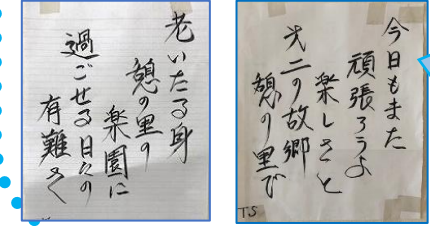 今日もまた
頑張ろうよ
楽しさと
第二の故郷
憩の里で
TS
老いたる身
憩の里の
楽園に
過ごせる日々の
有難さ